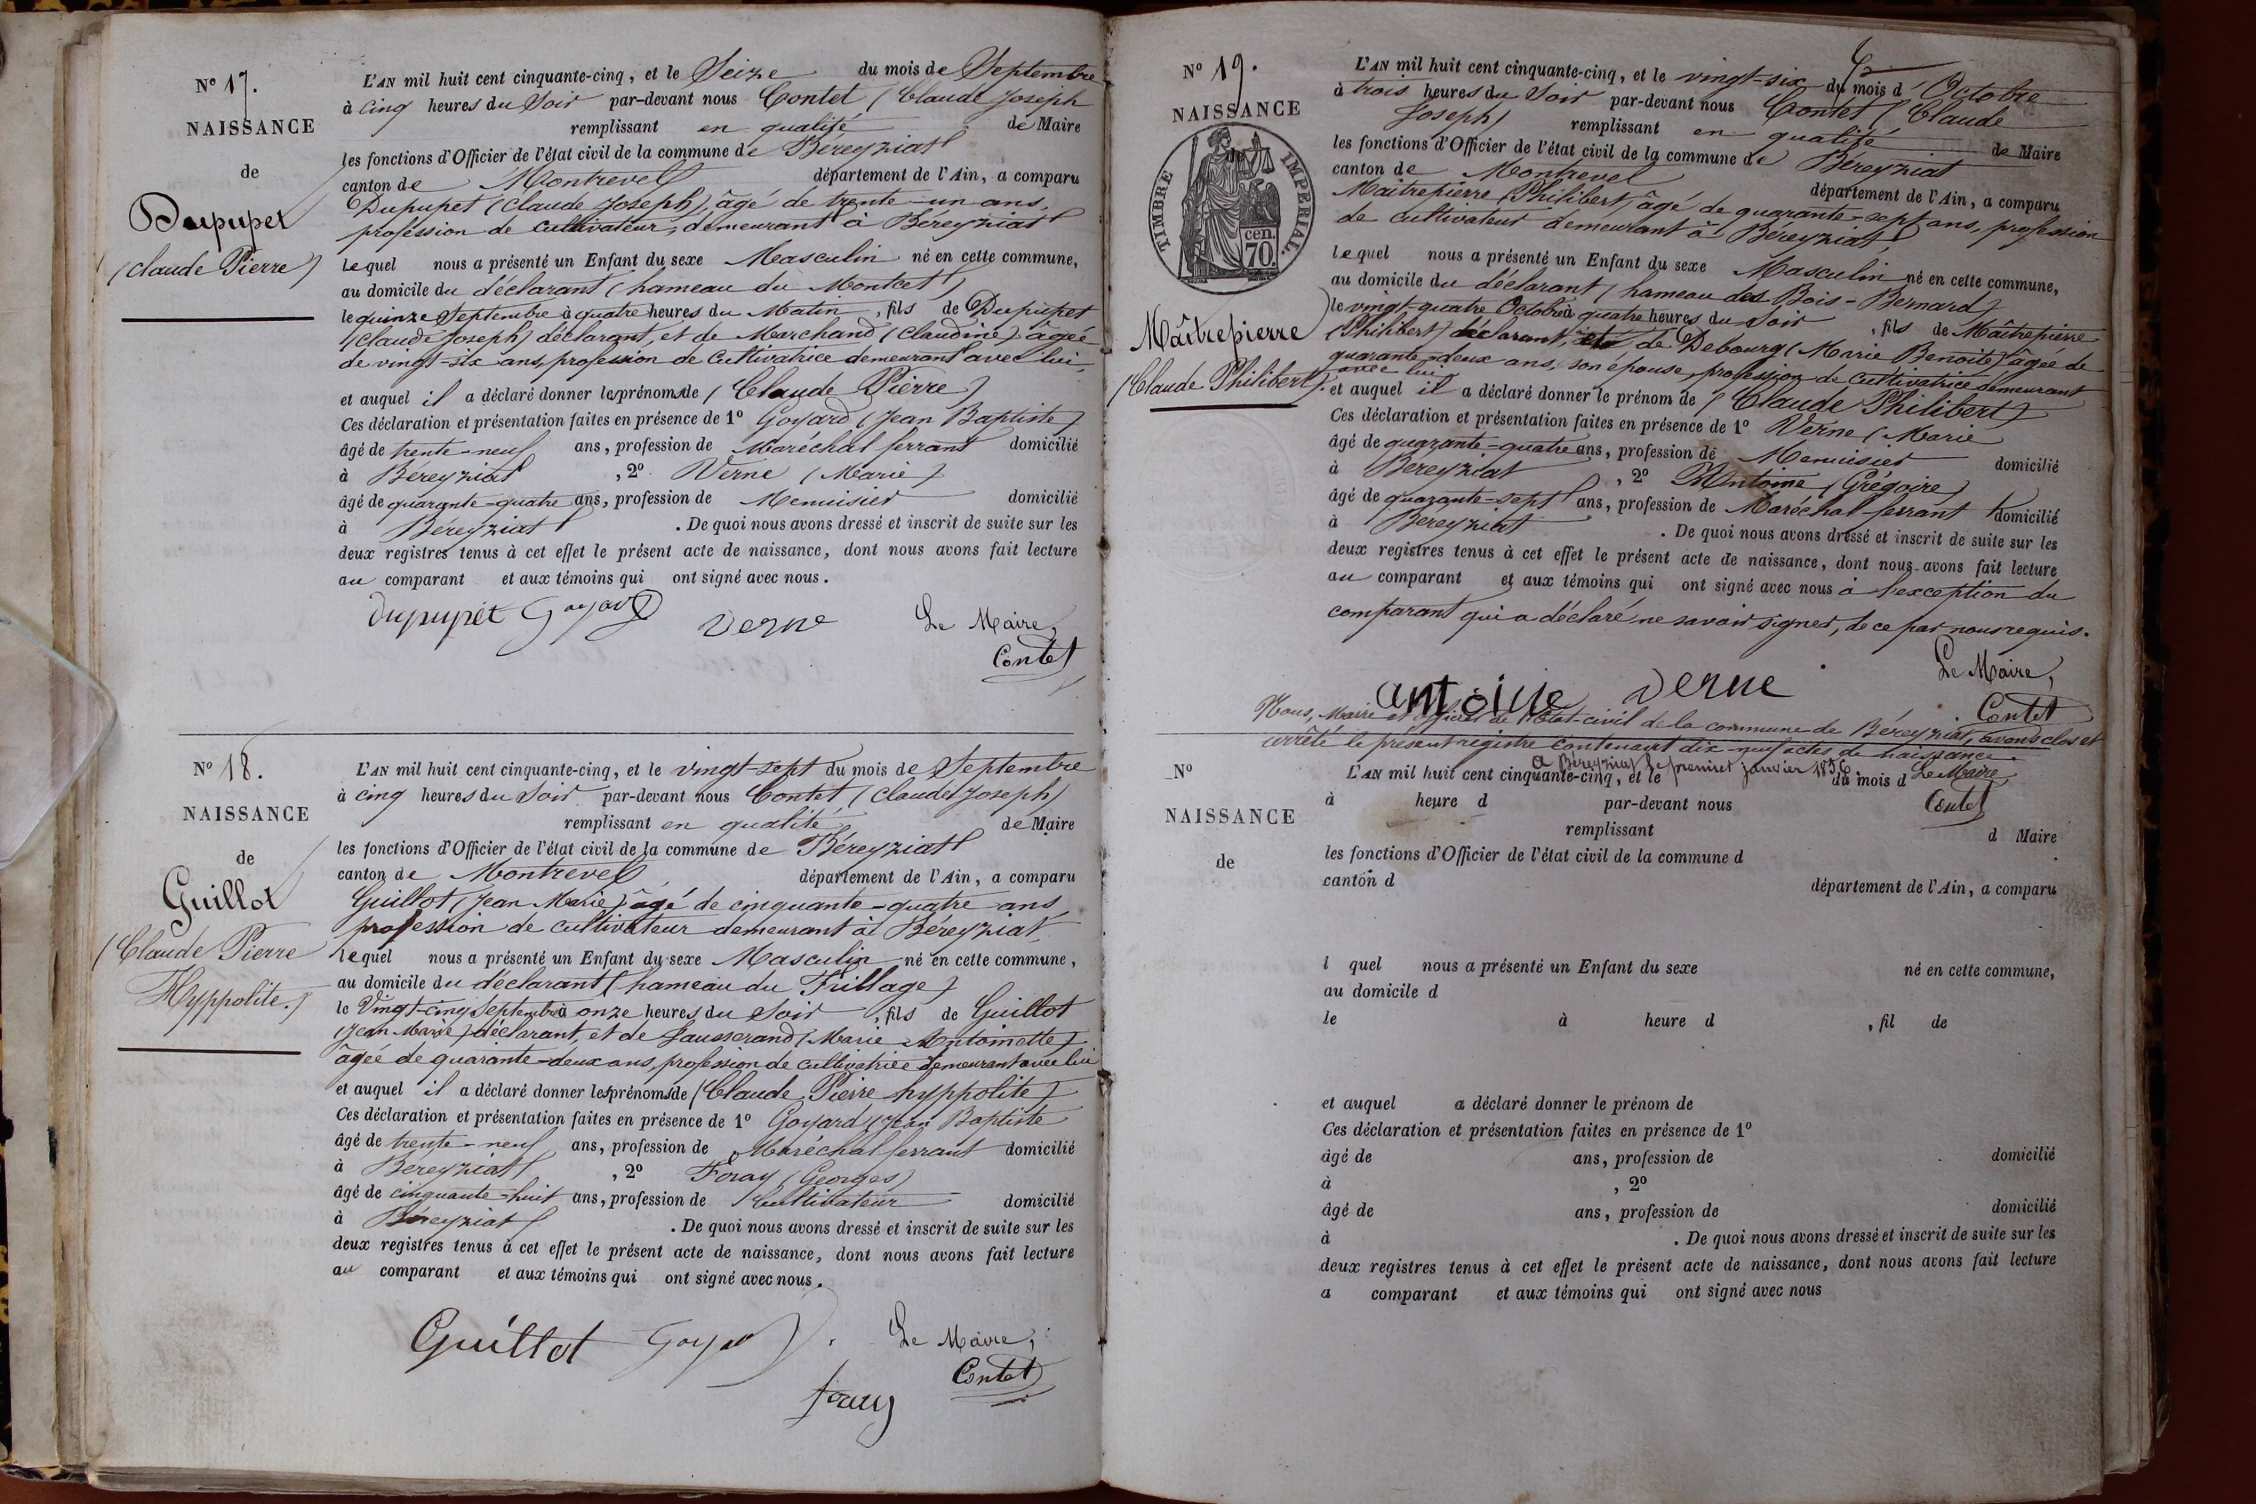 N° 17.
NAISSANCE
de
Dupupet
(Claude Pierre)
L'AN mil huit cent cinquante-cinq, et le Seize du mois de Septembre
à cinq heures du Soir par-devant nous Contet (Claude Joseph
remplissant en qualité de Maire
les fonctions d'Officier de l'état civil de la commune de Béreyziat
canton de Montrevel département de l'Ain, a comparu
Dupupet (Claude Joseph) âgé de trente-un ans.
profession de cultivateur, demeurant à Béreyziat
lequel nous a présenté un Enfant du sexe Masculin né en cette commune,
au domicile du déclarant (hameau du Montcet)
le quinze Septembre à quatre heures du Matin, fils de Dupupet
(Claude Joseph) déclarant, et de Marchand (Claudine) âgée
de vingt-six ans, profession de Cultivatrice demeurant avec lui,
et auquel il a déclaré donner les prénoms de (Claude Pierre)
Ces déclaration et présentation faites en présence de 1° Goyard (Jean Baptiste)
âgé de trente-neuf ans, profession de Maréchal ferrant domicilié
à Béreyziat, 2° Verne (Marie)
âgé de quarante-quatre ans, profession de Menuisier domicilié
à Béreyziat. De quoi nous avons dressé et inscrit de suite sur les
deux registres tenus à cet effet le présent acte de naissance, dont nous avons fait lecture
au comparant et aux témoins qui ont signé avec nous.
dupupet Goyard verne Le Maire,
Contet
N° 18.
NAISSANCE
de
Guillot
(Claude Pierre
Hyppolite.)
L'AN mil huit cent cinquante-cinq, et le vingt-sept du mois de Septembre
à cinq heures du Soir par-devant nous Contet (Claude Joseph)
remplissant en qualité de Maire
les fonctions d'Officier de l'état civil de la commune de Béreyziat
canton de Montrevel département de l'Ain, a comparu
Guillot (Jean Marie) âgé de cinquante-quatre ans
profession de cultivateur demeurant à Béreyziat
lequel nous a présenté un Enfant du sexe Masculin né en cette commune,
au domicile du déclarant (hameau du Frillage)
le Vingt-cinq Septembre à onze heures du Soir, fils de Guillot
(Jean Marie) déclarant, et de Jausserand (Marie Antoinette)
âgée de quarante-deux ans, profession de cultivatrice demeurant avec lui
et auquel il a déclaré donner les prénoms de (Claude Pierre hyppolite)
Ces déclaration et présentation faites en présence de 1° Goyard (Jean Baptiste
âgé de trente-neuf ans, profession de Maréchal ferrant domicilié
à Béreyziat, 2° Foray (Georges)
âgé de cinquante-huit ans, profession de Cultivateur domicilié
à Béreyziat. De quoi nous avons dressé et inscrit de suite sur les
deux registres tenus à cet effet le présent acte de naissance, dont nous avons fait lecture
au comparant et aux témoins qui ont signé avec nous.
Guillot Goyard Le Maire,
Contet
foray
N° 19.
NAISSANCE
TIMBRE IMPERIAL.
cen.
70.
Maîtrepierre
(Claude Philibert)
L'AN mil huit cent cinquante-cinq, et le vingt-six du mois d'Octobre
à trois heures du Soir par-devant nous Contet (Claude
Joseph) remplissant en qualité de Maire
les fonctions d'Officier de l'état civil de la commune de Béreyziat
canton de Montrevel département de l'Ain, a comparu
Maîtrepierre (Philibert) âgé de quarante-sept ans, profession
de cultivateur demeurant à Béreyziat,
lequel nous a présenté un Enfant du sexe Masculin né en cette commune,
au domicile du déclarant (hameau des Bois-Bernard)
le vingt-quatre Octobre à quatre heures du Soir, fils de Maîtrepierre
(Philibert) déclarant, et de Debourg (Marie Benoite) âgée de
quarante-deux ans, son épouse, profession de cultivatrice demeurant
avec lui
et auquel il a déclaré donner le prénom de (Claude Philibert)
Ces déclaration et présentation faites en présence de 1° Verne (Marie
âgé de quarante-quatre ans, profession de Menuisier domicilié
à Béreyziat, 2° Antoine (Grégoire)
âgé de quarante-sept ans, profession de Maréchal-ferrant domicilié
à Béreyziat. De quoi nous avons dressé et inscrit de suite sur les
deux registres tenus à cet effet le présent acte de naissance, dont nous avons fait lecture
au comparant et aux témoins qui ont signé avec nous à l'exception du
comparant qui a déclaré ne savoir signer, de ce par nous requis.
antoine verne Le Maire,
Contet
Nous, Maire et officier de l'Etat-civil de la commune de Béreyziat, avons clos et
arrêté le présent registre contenant dix-neuf actes de naissance
a Béreyziat le premier janvier 1856. Le Maire
Contet
N°
NAISSANCE
de
L'AN mil huit cent cinquante-cinq, et le du mois d
à heure d par-devant nous
remplissant d Maire
les fonctions d'Officier de l'état civil de la commune d
canton d département de l'Ain, a comparu
l quel nous a présenté un Enfant du sexe né en cette commune,
au domicile d
le à heure d, fil de
et auquel a déclaré donner le prénom de
Ces déclaration et présentation faites en présence de 1°
âgé de ans, profession de domicilié
à, 2°
âgé de ans, profession de domicilié
à. De quoi nous avons dressé et inscrit de suite sur les
deux registres tenus à cet effet le présent acte de naissance, dont nous avons fait lecture
a comparant et aux témoins qui ont signé avec nous